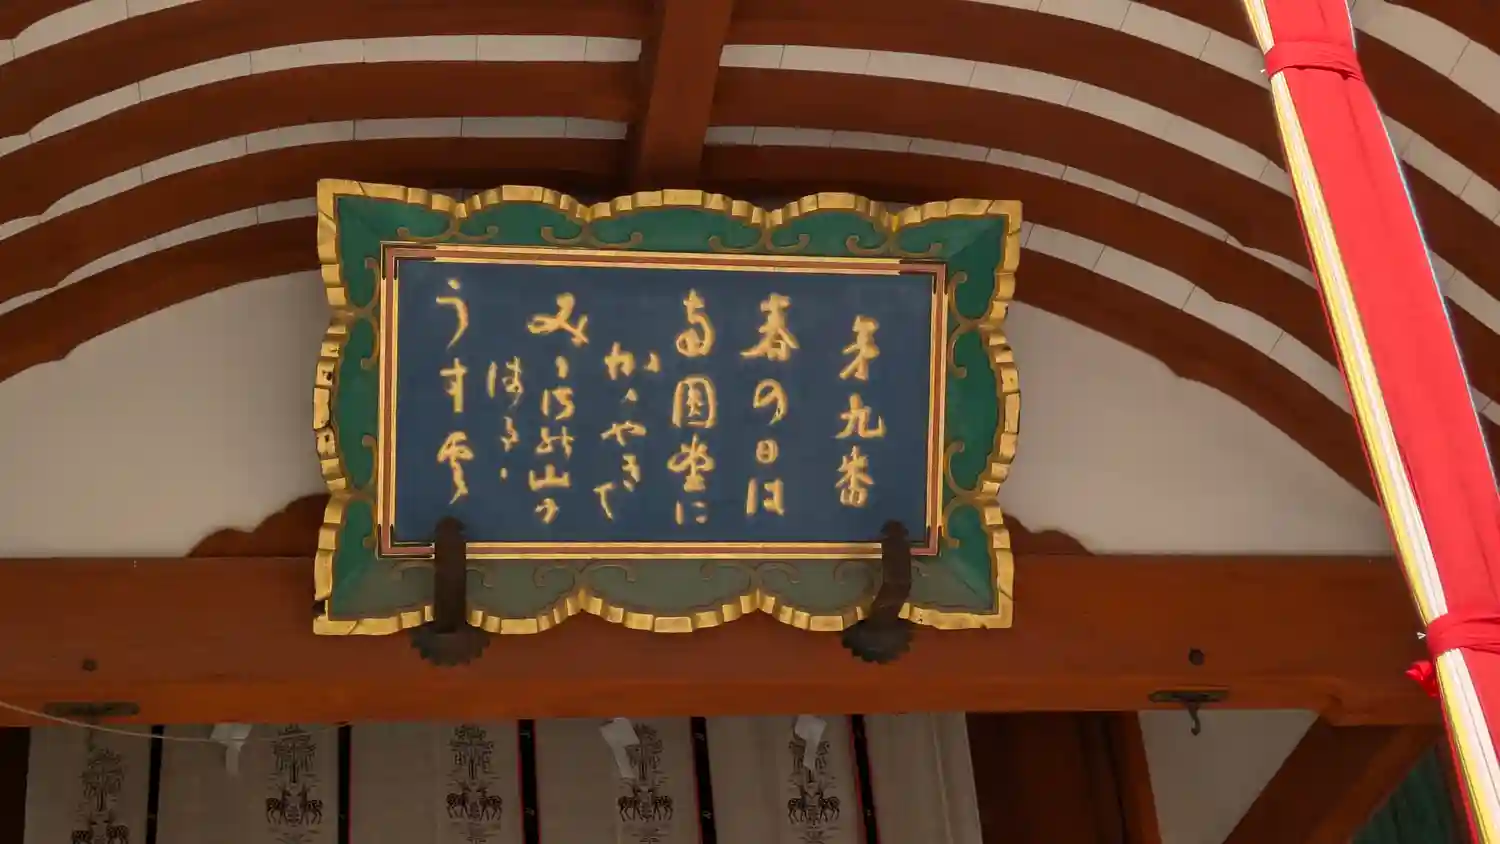 第九番
春の日は
南円堂に
かゝやきて
みかさの山に
はるゝ
うす雲